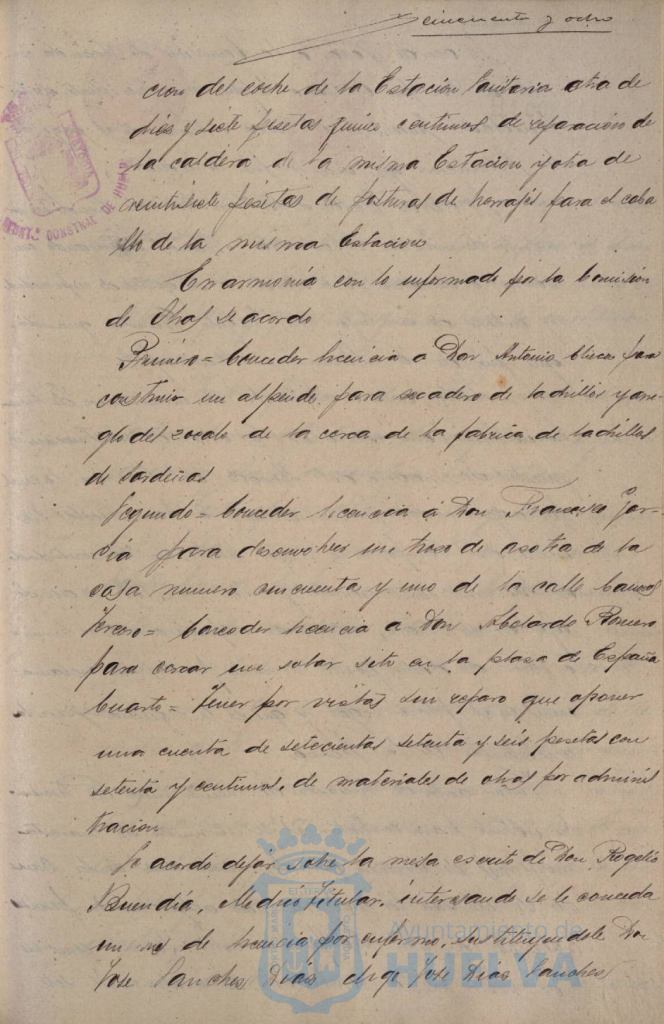 cincuenta y ocho
cion del coche de la Estación Sanitaria otra de
dies y siete pesetas quince centimos de reparación de
la caldera de la misma Estacion y otra de
veintisiete pesetas de posturas de herrajes para el caba
llo de la misma Estacion
En armonía con lo informado por la Comision
de Obras se acordo
Primero = Conceder licencia a Don Antonio para
construir un alpende para secadero de ladrillos y arre-
glo del zocalo de la cerca de la fabrica de ladrillos
de Cardeñas
Segundo = Conceder licencia á Don Francisco Gar-
cia para desenvolver un troso de asotea de la
casa numero cincuenta y uno de la calle
Tercero = Conceder licencia á Don Abelardo Romero
para cercar un solar sito en la plasa de España
Cuarto = Tener por vistas sin reparo que oponer
una cuenta de setecientas setenta y seis pesetas con
setenta y centimos, de materiales de obras por adminis
tracion
Se acordo dejar sobre la mesa escrito de Don Rogelio
Buendía, Medico Titular, interesando se le conceda
un mes de licencia por enfermo, sustituyendole Don
Jose Sanches Dias digo Jose Dias Sanches
Ayuntamiento de
HUELVA